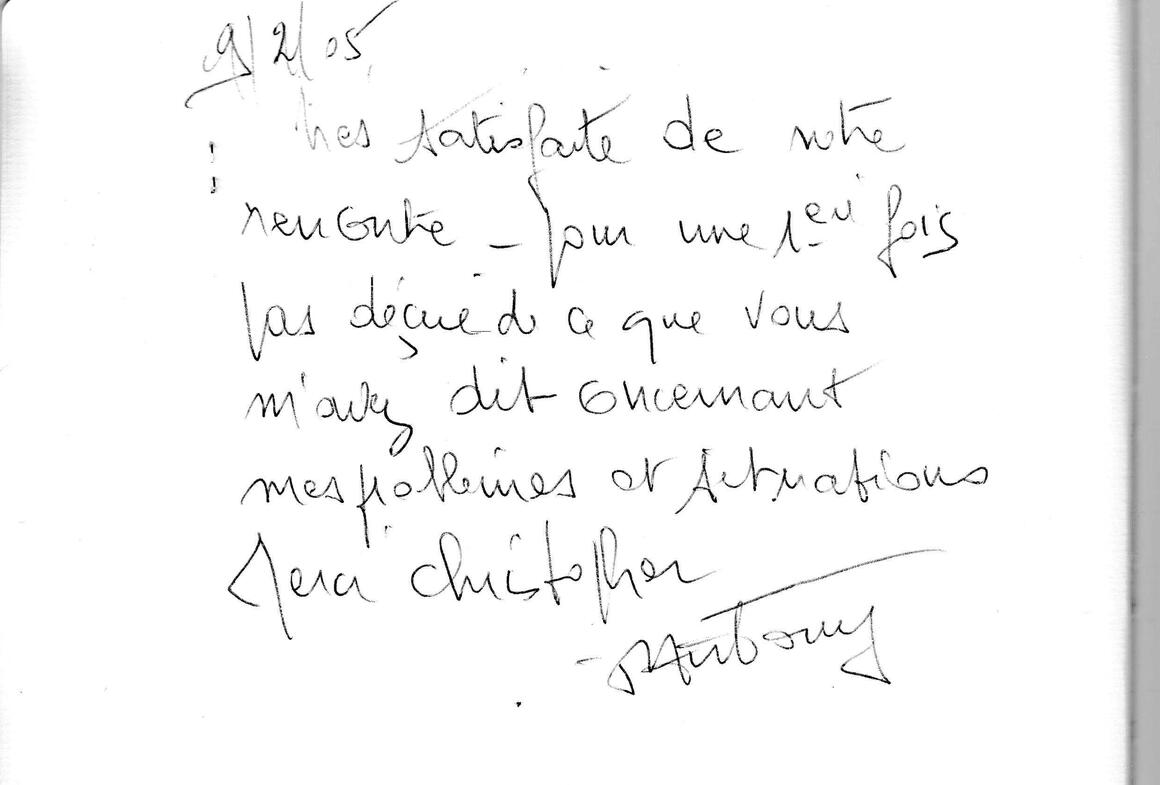 9/2/05
très satisfaite de notre
rencontre – pour une 1ère fois
pas déçue de ce que vous
m'avez dit concernant
mes problèmes et situations
Merci Christopher